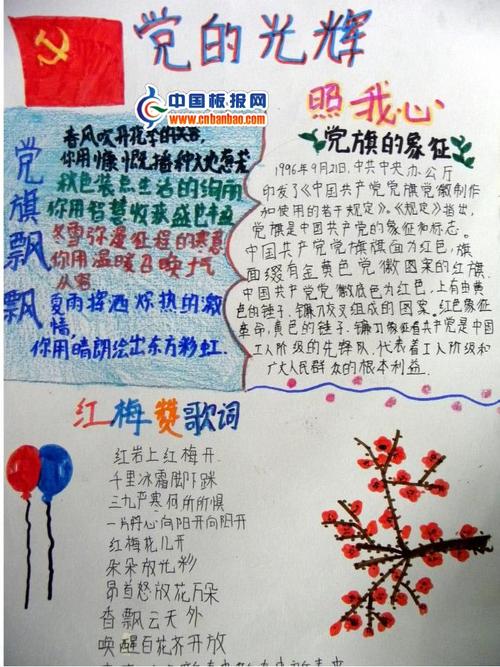 党的光辉
照我心
中国板报网
www.cnbanbao.com
党旗飘飘
你用慷慨播种大地
秋色装点生活的绚丽
你用智慧收获盛世
冬雪弥漫征程的寒意
你用温暖召唤士气
夏雨挥洒炽热的激
情.
你用晴朗绘出东方彩虹.
党旗的象征
1996年9月21日,中共中央办公厅
印发了《中国共产党党旗党徽制作
和使用的若干规定》。《规定》指出,
党旗是中国共产党的象征和标志。
中国共产党党旗旗面为红色,旗
面缀有金黄色党徽图案的红旗.
中国共产党党徽底色为红色,上有由黄
色的锤子、镰刀交叉组成的图案。红色象征
革命,黄色的锤子、镰刀象征着共产党是中国
工人阶级的先锋队.代表着工人阶级和
广大人民群众的根本利益.
红梅赞歌词
红岩上红梅开.
千里冰霜脚下踩
三九严寒何所惧
一片丹心向阳开向阳开
红梅花儿开
朵朵放光彩
昂首怒放花万朵
香飘云天外
唤醒百花齐开放